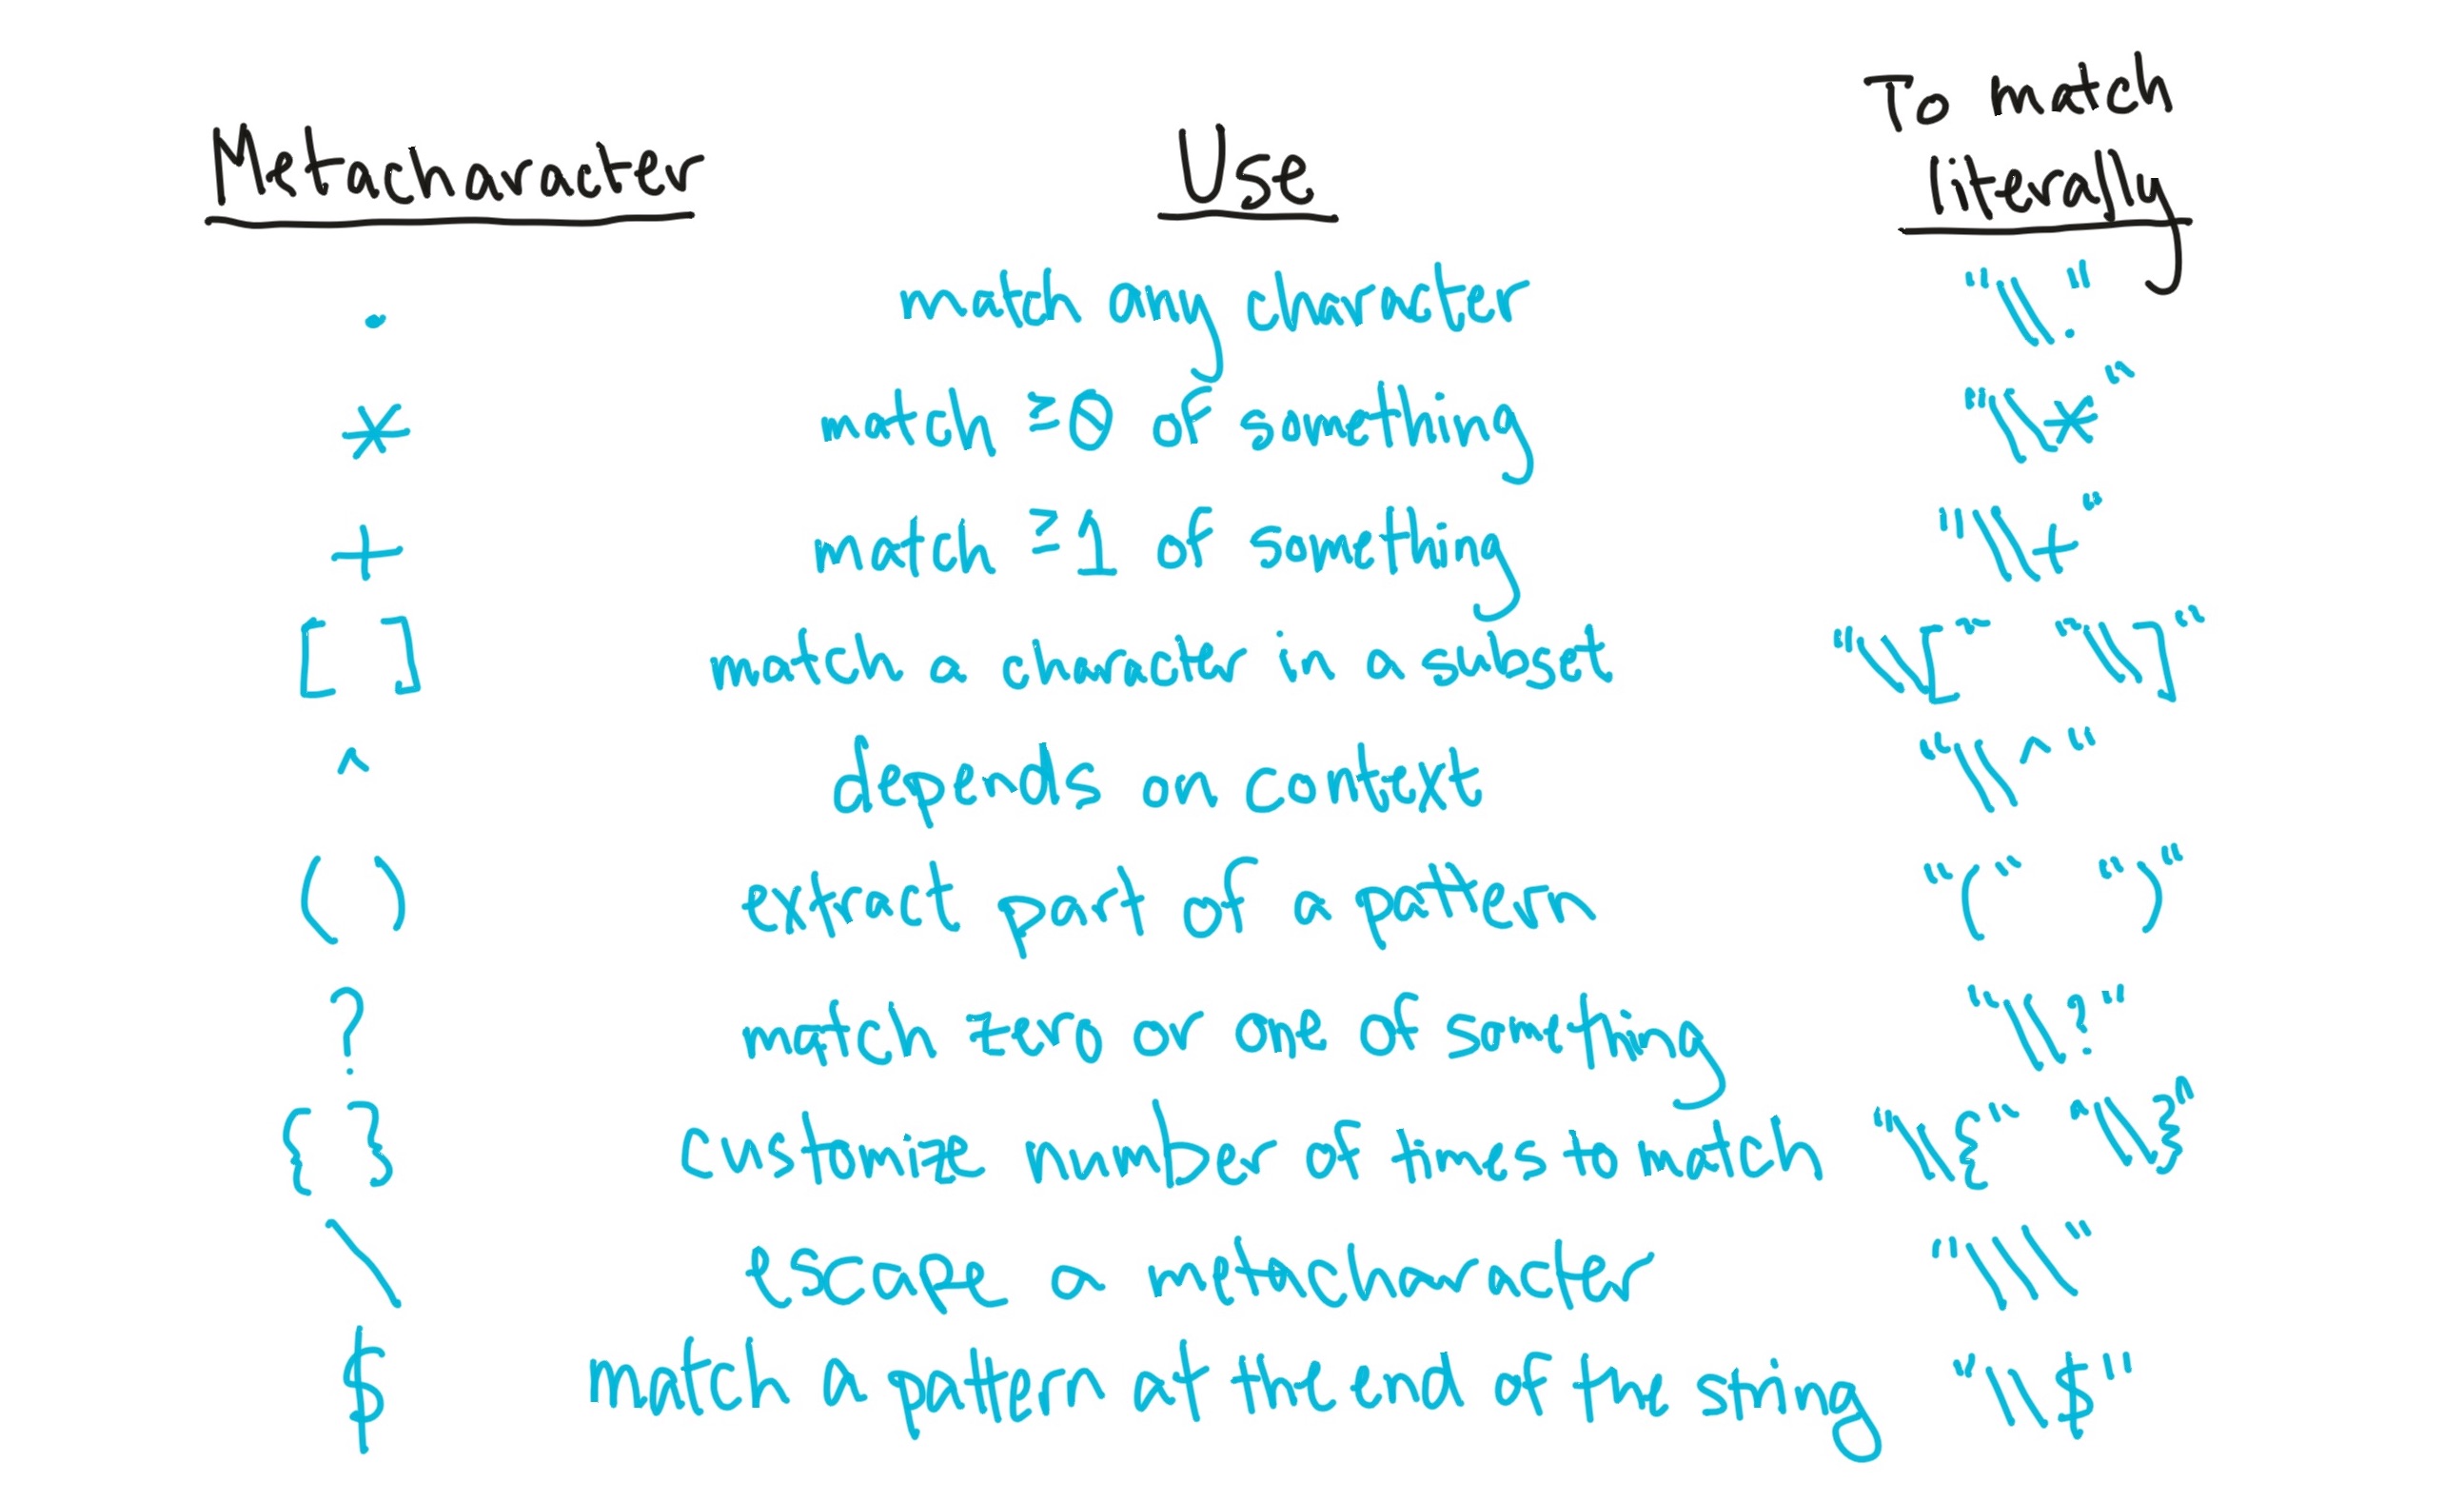 To match
Metacharacter Use literally
. match any character "\\."
* match ≥0 of something "\\*"
+ match ≥1 of something "\\+"
[ ] match a character in a subset "\\[" "\\]"
^ depends on context "\\^"
( ) extract part of a pattern "(" ")"
? match zero or one of something "\\?"
{ } customize number of times to match "\\{" "\\}"
\ escape a metacharacter "\\\"
$ match a pattern at the end of the string "\\$"